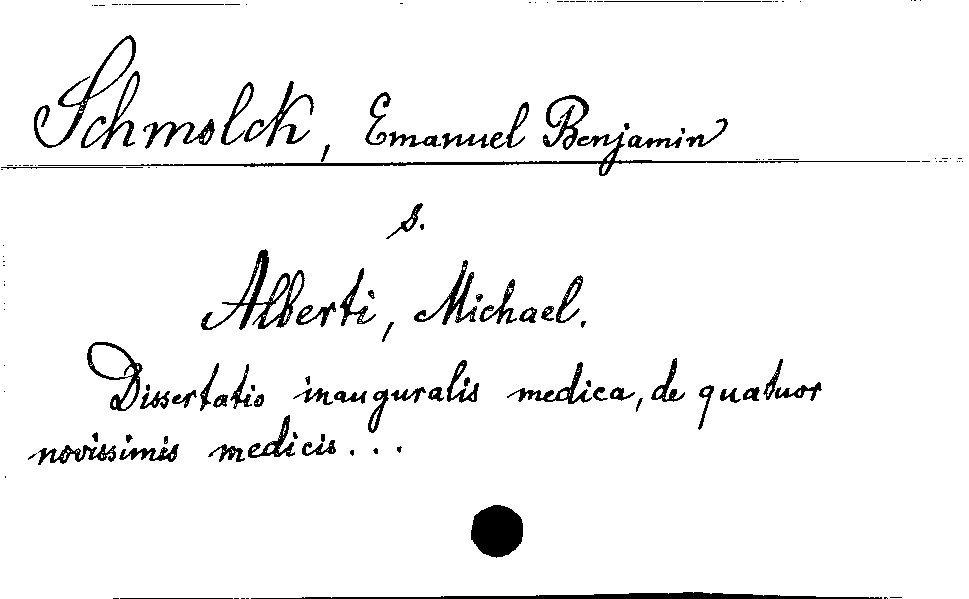 Schmolck, Emanuel Benjamin
s.
Alberti, Michael.
Dissertatio inauguralis medica, de quatuor
novissimis medicis...